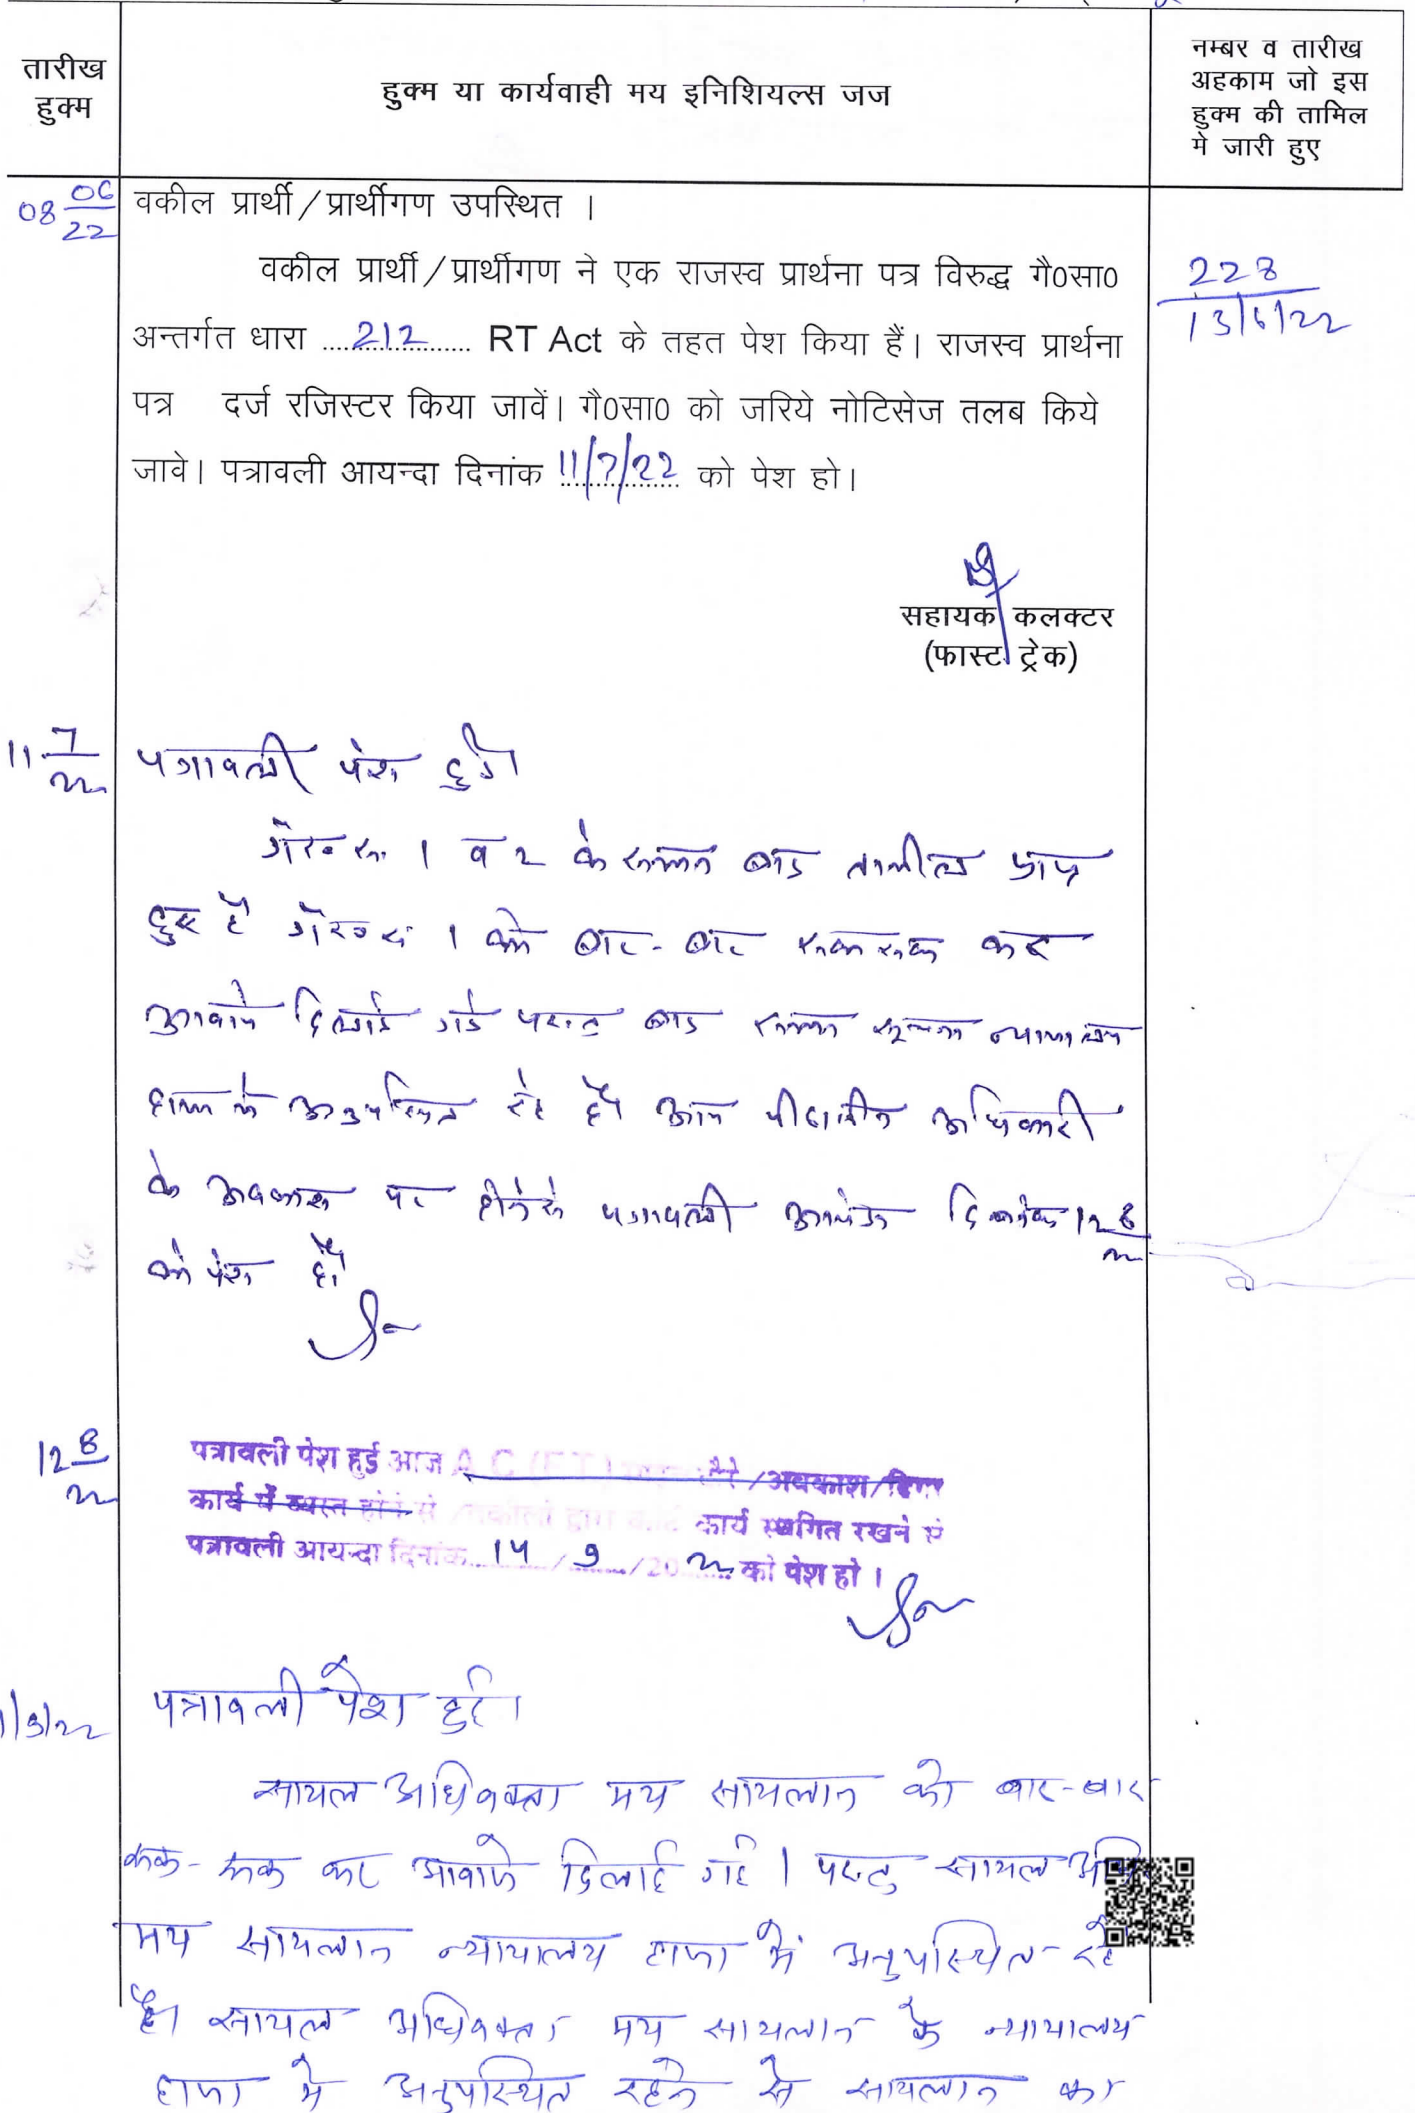 तारीख
हुक्म
हुक्म या कार्यवाही मय इनिशियल्स जज
नम्बर व तारीख
अहकाम जो इस
हुक्म की तामिल
मे जारी हुए
08 06/22
वकील प्रार्थी/प्रार्थीगण उपस्थित ।
वकील प्रार्थी/प्रार्थीगण ने एक राजस्व प्रार्थना पत्र विरुद्ध गै0सा0
228
13/6/22
अन्तर्गत धारा ....212.... RT Act के तहत पेश किया हैं। राजस्व प्रार्थना
पत्र दर्ज रजिस्टर किया जावें। गै0सा0 को जरिये नोटिसेज तलब किये
जावे। पत्रावली आयन्दा दिनांक 11/7/22 को पेश हो।
सहायक कलक्टर
(फास्ट ट्रेक)
11 7/22
पत्रावली पेश हुई।
1 व 2 के बाद तामील प्राप्त
हुए है 1 को बार-बार कर
आवाजे दिलाई गई परन्तु बाद सूचना न्यायालय
हाजा मे अनुपस्थित रहे है। आज पीठासीन अधिकारी
के अवकाश पर होने से पत्रावली आयंदा दिनांक 12 8/22
को पेश हो
12 8/22
पत्रावली पेश हुई आज A C (F T) दौरे/अवकाश/
कार्य में व्यस्त होने से /वकीलो द्वारा कार्य स्थगित रखने से
पत्रावली आयन्दा दिनांक 14/9/20 22 को पेश हो ।
/9/22
पत्रावली पेश हुई।
सायल अधिवक्ता मय सायलान को बार-बार
रूक-रूक कर आवाजे दिलाई गई । परन्तु सायल अधि
मय सायलान न्यायालय हाजा में अनुपस्थित रहे
है। सायल अधिवक्ता मय सायलान के न्यायालय
हाजा मे अनुपस्थित रहने से सायलान का